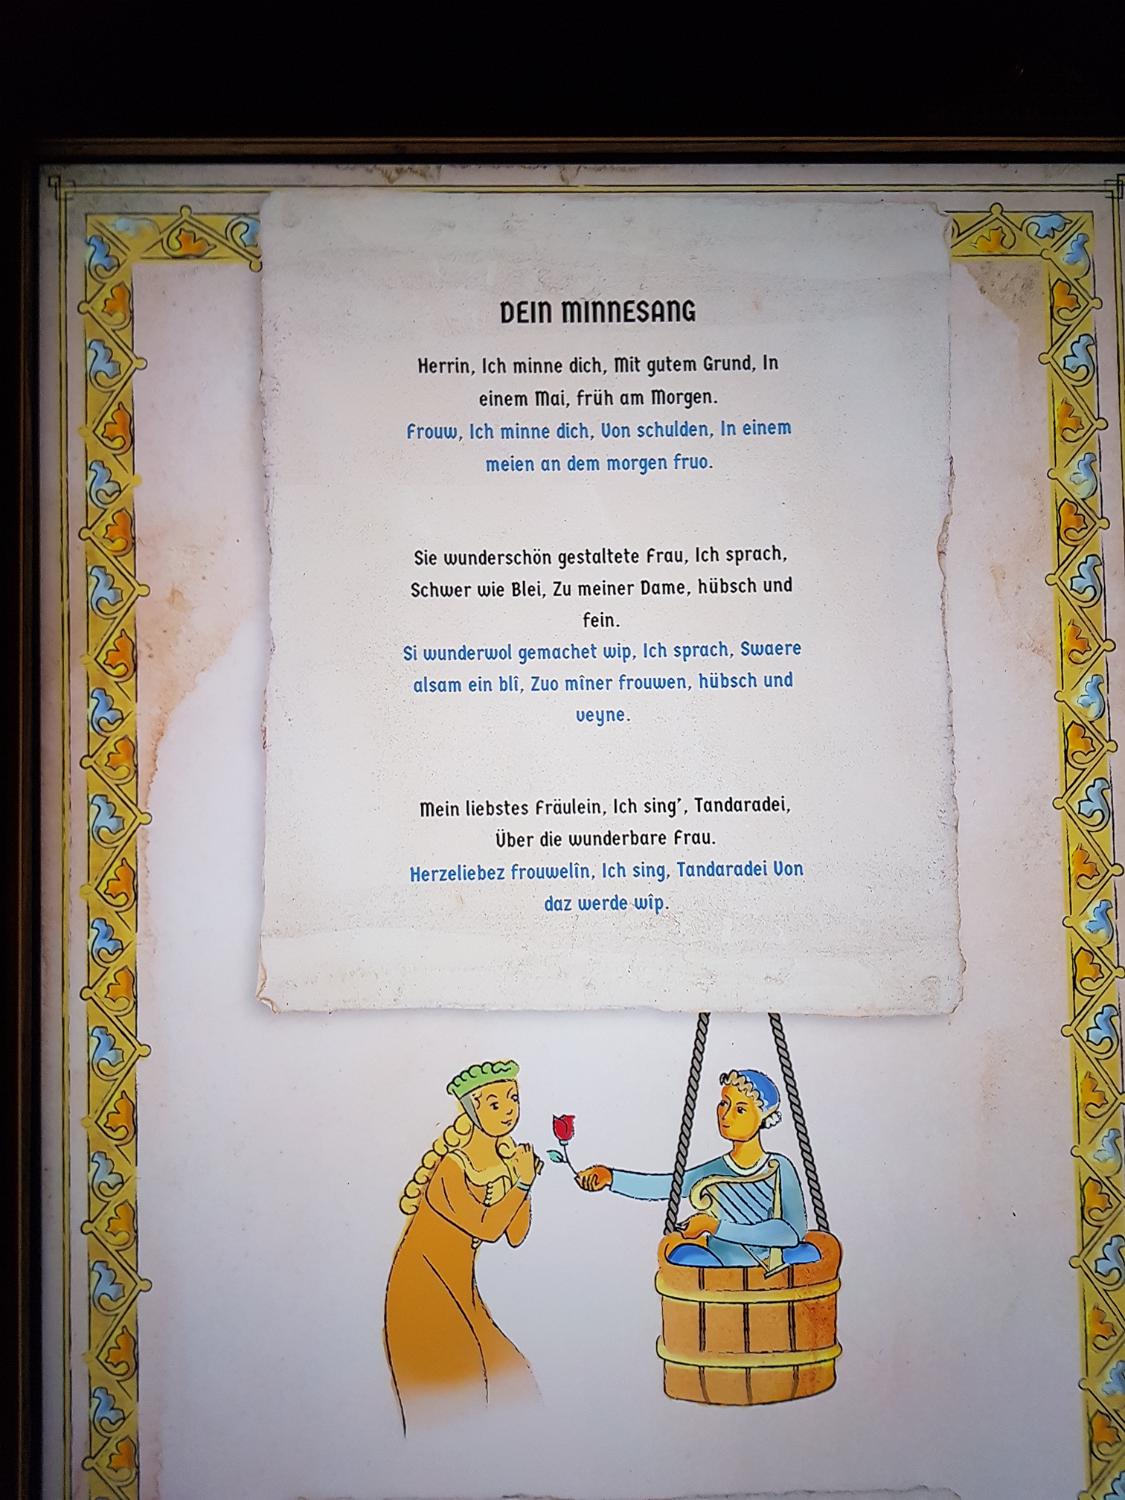 DEIN MINNESANG
Herrin, Ich minne dich, Mit gutem Grund, In
einem Mai, früh am Morgen.
Frouw, Ich minne dich, Von schulden, In einem
meien an dem morgen fruo.
Sie wunderschön gestaltete Frau, Ich sprach,
Schwer wie Blei, Zu meiner Dame, hübsch und
fein.
Si wunderwol gemachet wip, Ich sprach, Swaere
alsam ein blî, Zuo mîner frouwen, hübsch und
veyne.
Mein liebstes Fräulein, Ich sing', Tandaradei,
Über die wunderbare Frau.
Herzeliebez frouwelîn, Ich sing, Tandaradei Von
daz werde wîp.